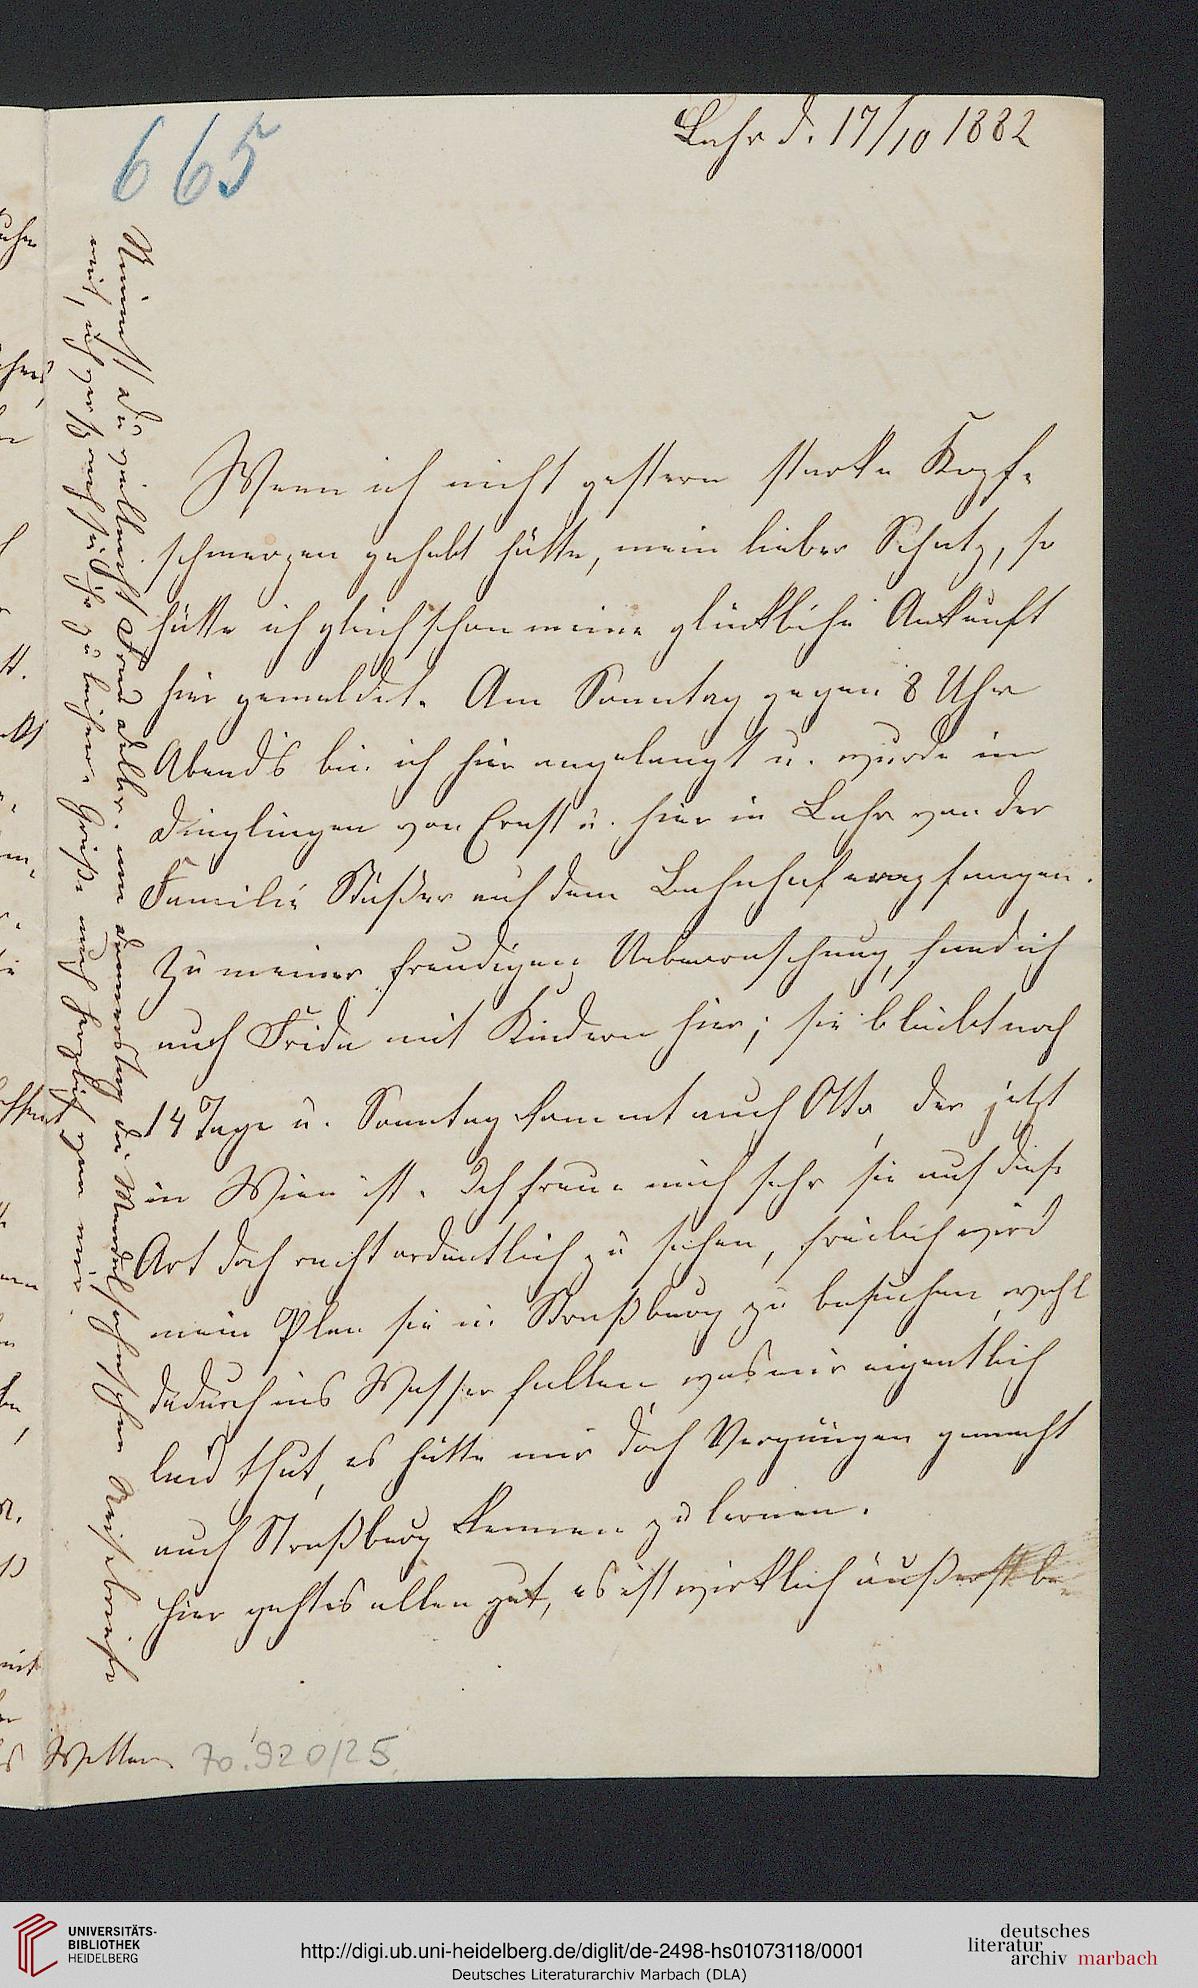 665
Lahr d. 17/10 1882
Wenn ich nicht gestern starke Kopf-
schmerzen gehabt hätte, mein lieber Schatz, so
hätte ich gleich schon meine glückliche Ankunft
hier gemeldet. Am Sonntag gegen 8 Uhr
Abend's bin ich hier angelangt u. wurde in
Dinglingen von Ernst u. hier in Lahr von der
Familie Stüßer auf dem Bahnhof empfangen.
Zu meiner freudigen Ueberraschung, fand ich
auch Frida mit Kindern hier; sie bleibt noch
14 Tage u. Sonntag kommt auch Otto, der jetzt
in Wien ist. Ich freue mich sehr sie auf diese
Art doch recht ordentlich zu sehen, freilich wird
mein Plan sie in Straßburg zu besuchen, wohl
dadurch ins Wasser fallen, was mir eigentlich
leid thut, es hätte mir doch Vergnügen gemacht
auch Straßburg kennen zu lernen.
Hier geht es allen gut, es ist wirklich äußerst be-
Nimmst du vielleicht Frau Adller. am Donnerstag die Mendelsohnschen Reisebriefe
mit, ich versprach sie ihr zu leihen. Grüße auch herzlich von mir.
Wetter
70.920/25
UNIVERSITÄTS-
BIBLIOTHEK
HEIDELBERG
http://digi.ub.uni-heidelberg.de/diglit/de-2498-hs01073118/0001
Deutsches Literaturarchiv Marbach (DLA)
deutsches
literatur
archiv marbach